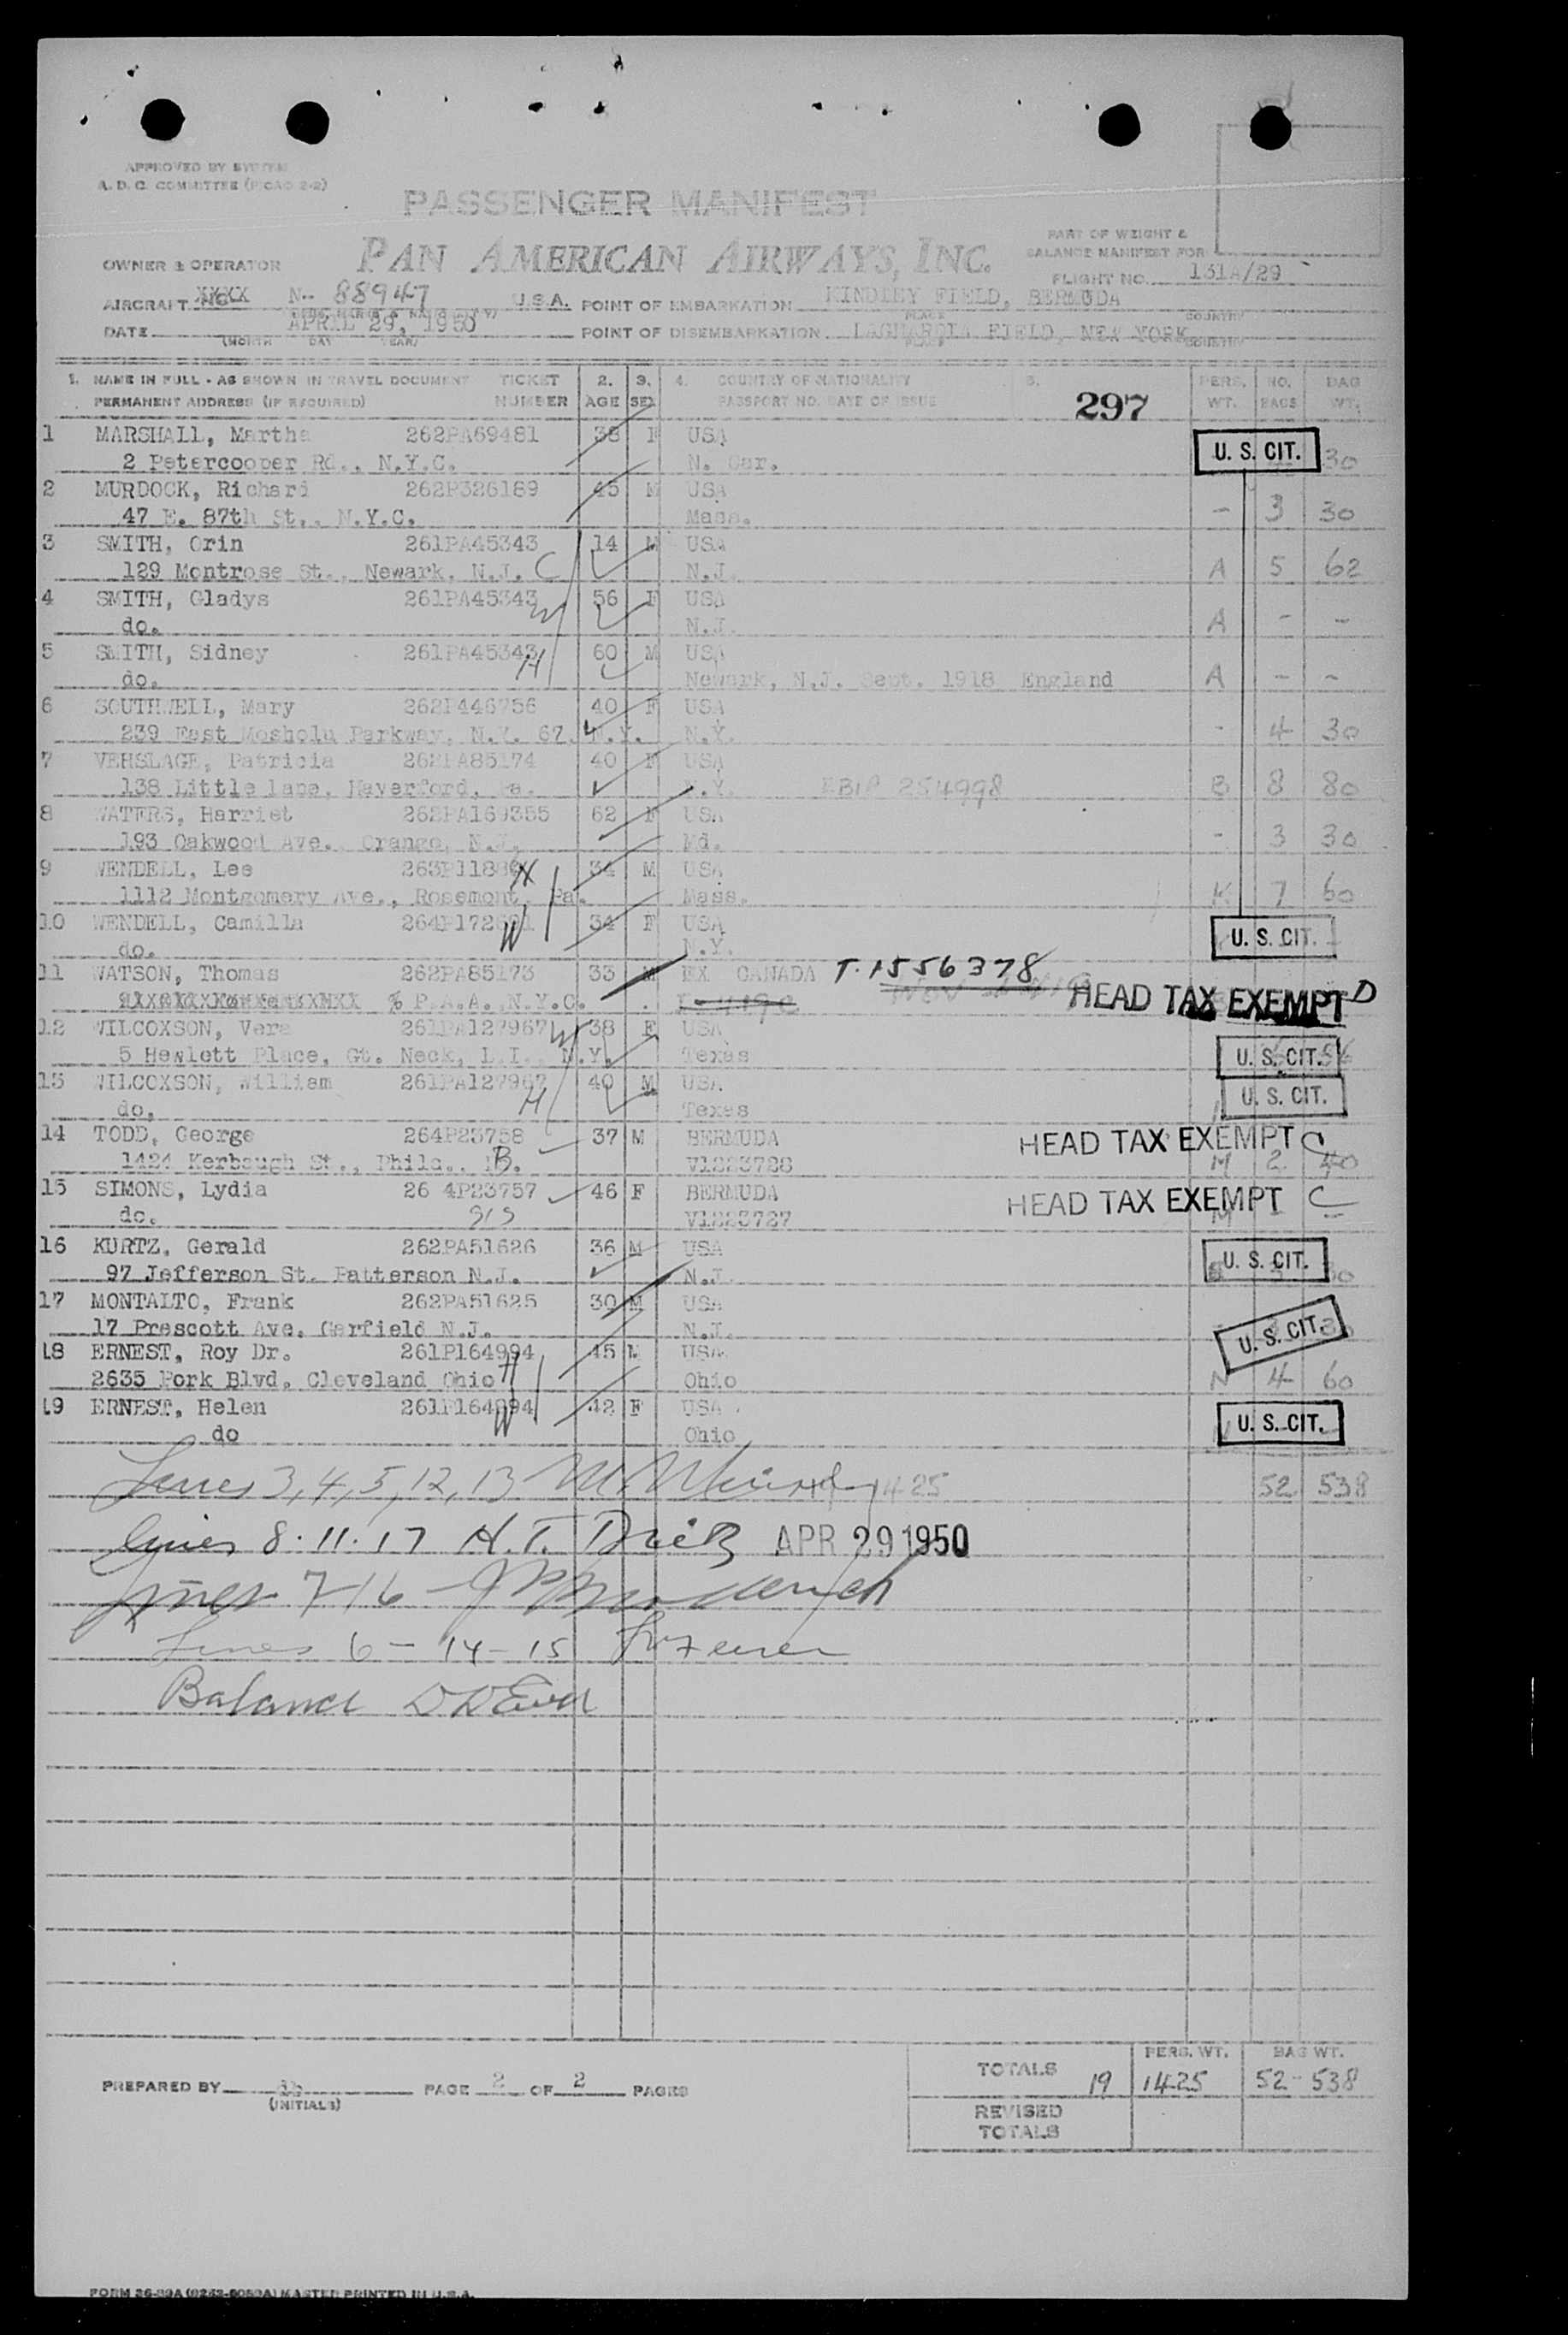 APPROVED BY SYSTEM
A. D. C. COMMITTEE (PICAO 2-2)
PASSENGER MANIFEST
PART OF WEIGHT &
BALANCE MANIFEST FOR
OWNER & OPERATOR PAN AMERICAN AIRWAYS, INC.
FLIGHT NO. 131A/29
AIRCRAFT NO. XXXX N- 88947 U.S.A. POINT OF EMBARKATION KINDLEY FIELD, BERMUDA
PLACE COUNTRY
DATE APRIL 29, 1950 POINT OF DISEMBARKATION LAGUARDIA FIELD, NEW YORK
(MONTH DAY YEAR) PLACE COUNTRY
1. NAME IN FULL - AS SHOWN IN TRAVEL DOCUMENT TICKET 2. 3. 4. COUNTRY OF NATIONALITY 5. PERS. NO. BAG
PERMANENT ADDRESS (IF REQUIRED) NUMBER AGE SEX PASSPORT NO. DATE OF ISSUE 297 WT. BAGS WT.
1 MARSHALL, Martha 262PA69481 38 F USA U. S. CIT.
2 Petercooper Rd., N.Y.C. N. Car. 30
2 MURDOCK, Richard 262P326189 45 M USA
47 E. 87th St., N.Y.C. Mass. - 3 30
3 SMITH, Orin 261PA45343 14 M USA
129 Montrose St., Newark, N.J. C N.J. A 5 62
4 SMITH, Gladys 261PA45343 56 F USA
do. W N.J. A - -
5 SMITH, Sidney 261PA45343 60 M USA
do. H Newark, N.J. Sept. 1918 England A - -
6 SOUTHWELL, Mary 262P446756 40 F USA
239 East Mosholu Parkway, N.Y. 67, N.Y. N.Y. - 4 30
7 VERSLAGE, Patricia 262PA85174 40 F USA
138 Little lane, Haverford, Pa. N.Y. 254998 B 8 80
8 WATERS, Harriet 262PA169355 62 F USA
193 Oakwood Ave., Orange, N.J. Md. - 3 30
9 WENDELL, Lee 263P118 H 34 M USA
1112 Montgomery Ave., Rosemont, Pa. Mass. K 7 60
10 WENDELL, Camilla 264P172691 W 34 F USA U. S. CIT.
do. N.Y.
11 WATSON, Thomas 262PA85173 33 M EX CANADA T-1556378
% P.A.A., N.Y.C. HEAD TAX EXEMPT D
12 WILCOXSON, Vera 261PA127967 W 38 F USA
5 Hewlett Place, Gt. Neck, L.I., N.Y. Texas U. S. CIT.
13 WILCOXSON, William 261PA127967 40 M USA U. S. CIT.
do. H Texas
14 TODD, George 264P23758 37 M BERMUDA HEAD TAX EXEMPT C
1424 Kerbaugh St., Phila., V1223728 M 2 40
15 SIMONS, Lydia 26 4P23757 46 F BERMUDA HEAD TAX EXEMPT C
do. sis V1223727 M -
16 KURTZ, Gerald 262PA51626 36 M USA U. S. CIT.
97 Jefferson St. Patterson N.J. N.J.
17 MONTALTO, Frank 262PA51625 30 M USA
17 Prescott Ave. Garfield N.J. N.J. U. S. CIT.
18 ERNEST, Roy Dr. 261P164994 45 M USA
2635 Pork Blvd, Cleveland Ohio H Ohio N 4 60
19 ERNEST, Helen 261P164994 42 F USA U. S. CIT.
do W Ohio
Lines 3, 4, 5, 12, 13 1425 52 538
Lines 8-11-17 H.T. APR 29 1950
Lines 7-16
Lines 6-14-15
Balance
PREPARED BY (INITIALS) PAGE 2 OF 2 PAGES
PERS. WT. BAG WT.
TOTALS 19 1425 52-538
REVISED
TOTALS
FORM 26-89A MASTER PRINTED IN U.S.A.